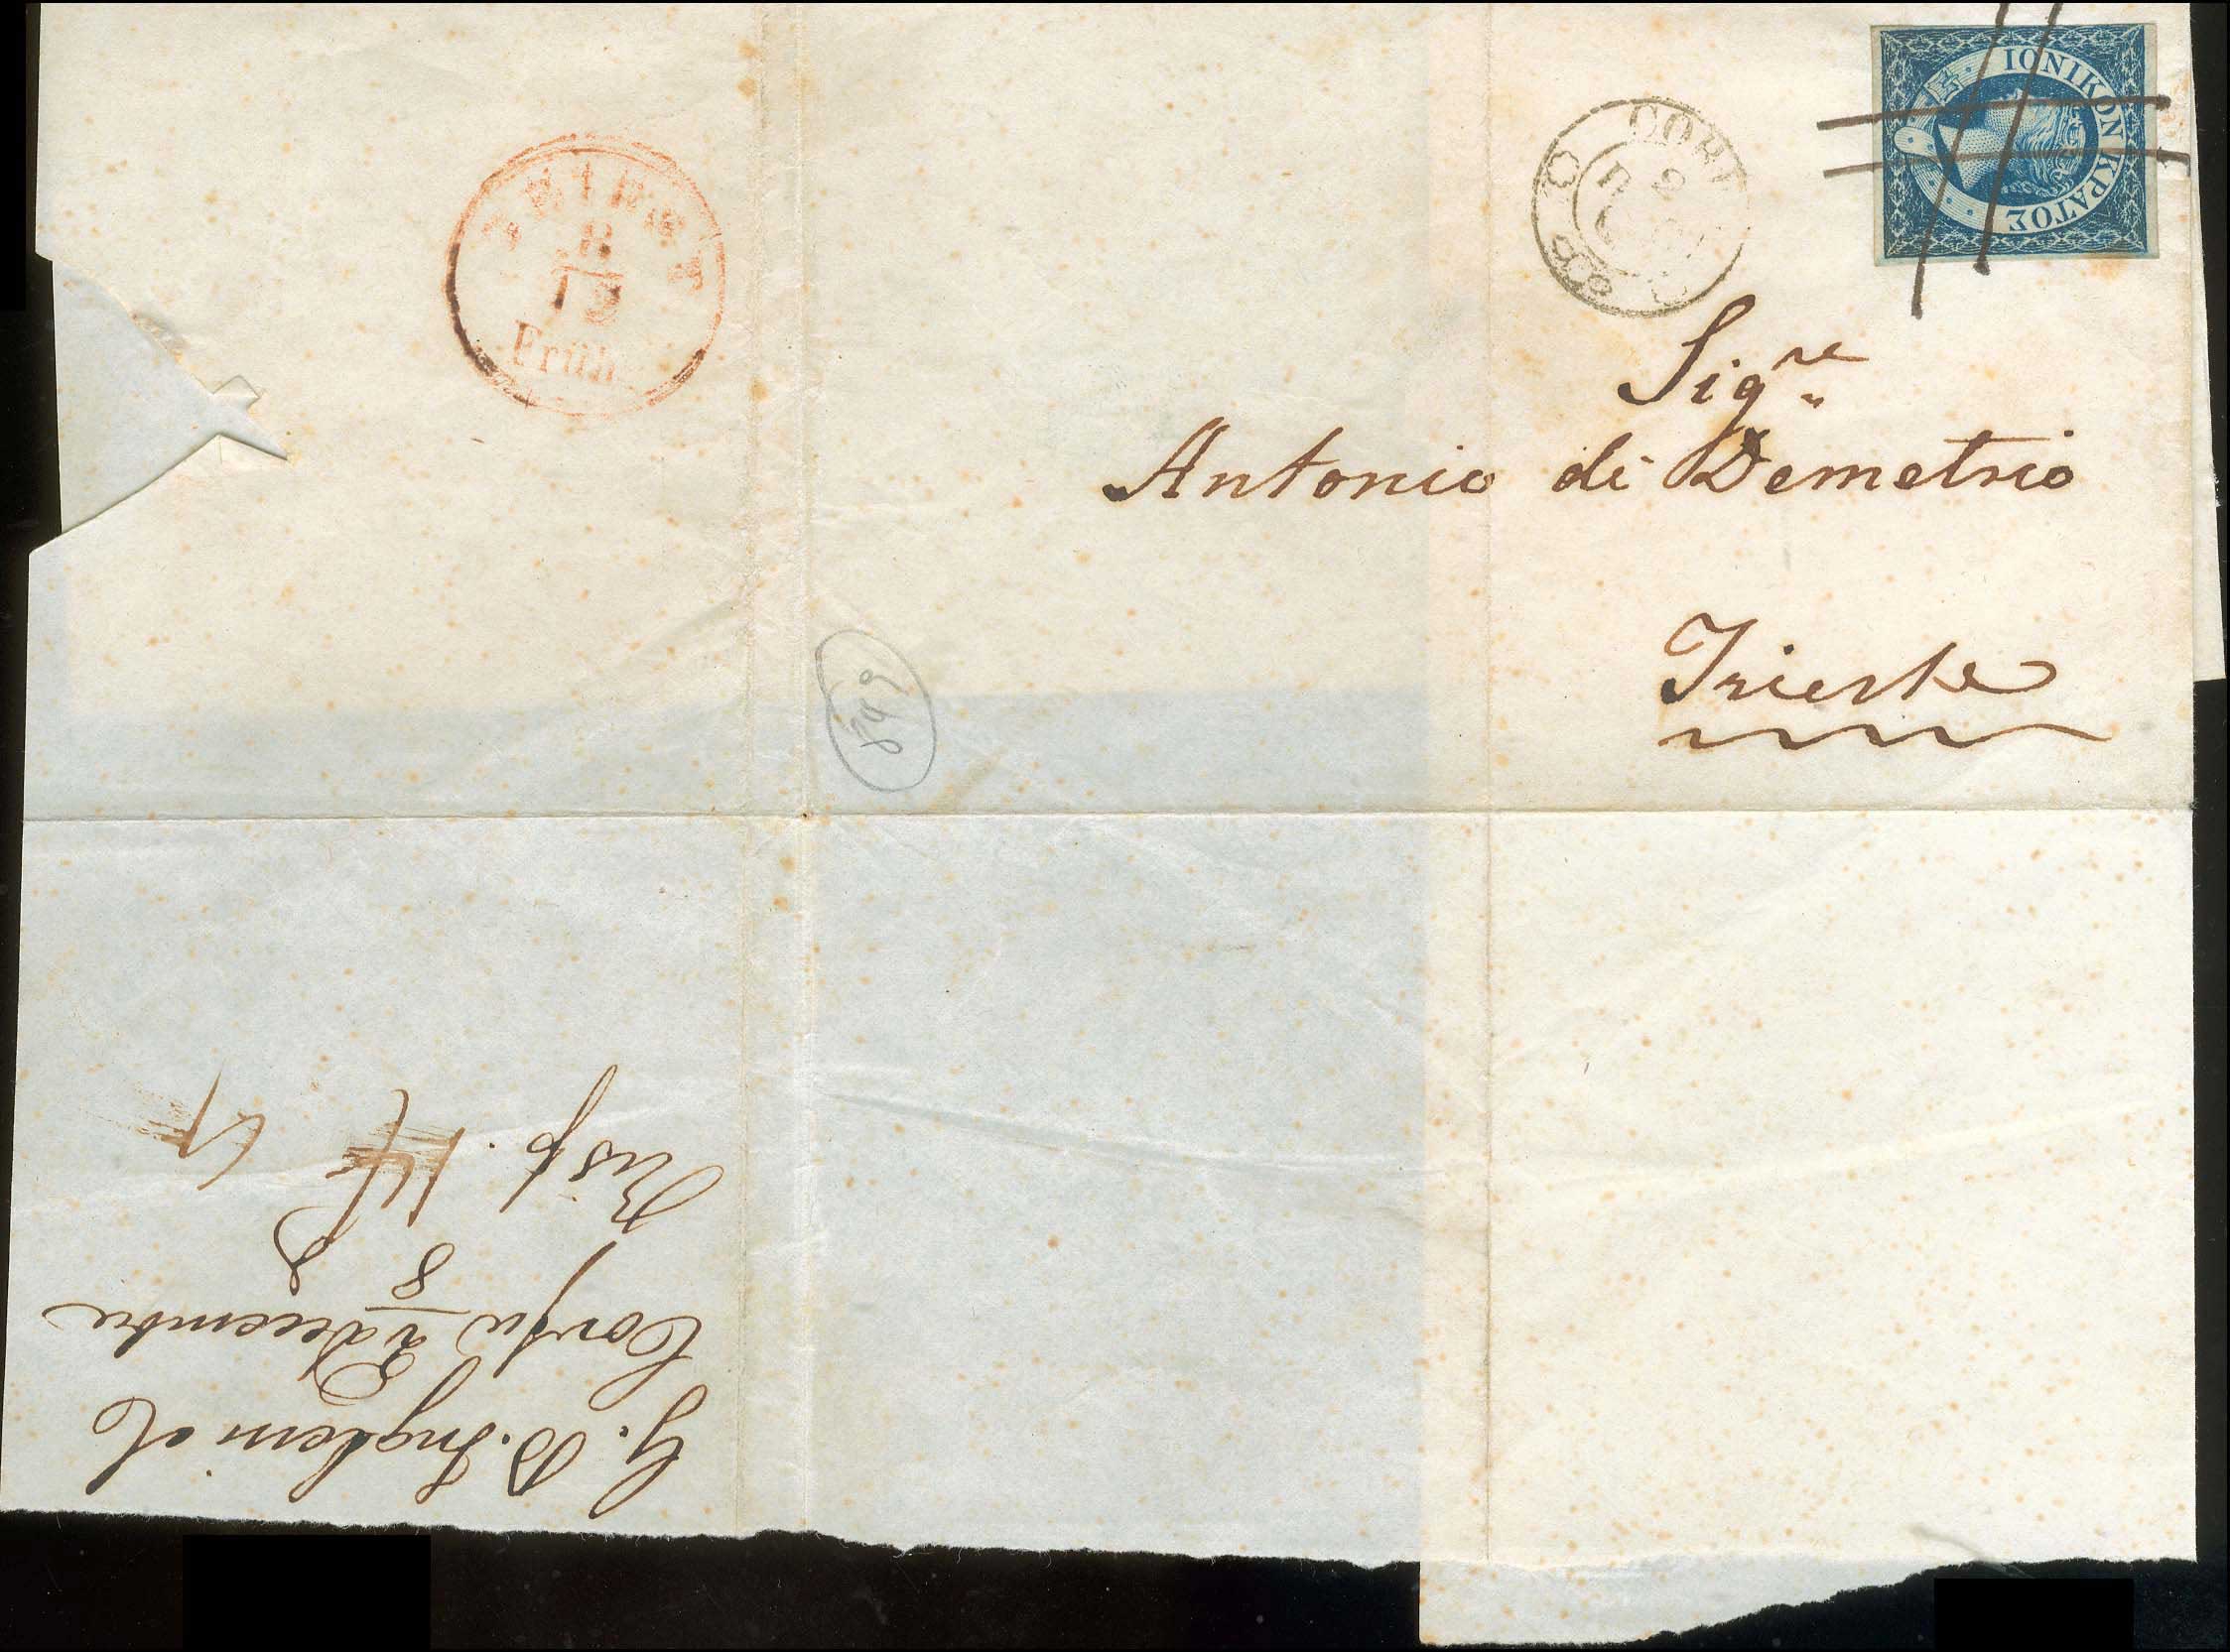 ΙΟΝΙΚΟΝ ΚΡΑΤΟΣ
CORFU
2
TRIEST
8
12
Früh
Sig.re
Antonio di Demetrio
Trieste
849
G. B. Inglesi
Corfu 2 Decembre
8
Risp. 14